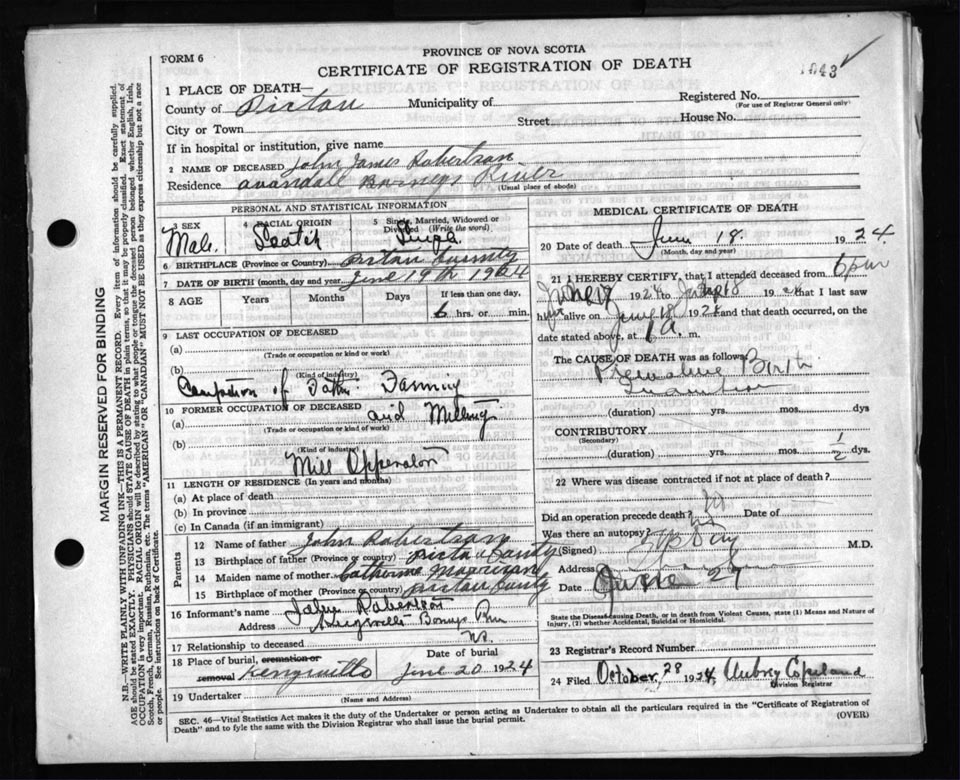 PROVINCE OF NOVA SCOTIA
FORM 6
CERTIFICATE OF REGISTRATION OF DEATH
1043 ✓
1 PLACE OF DEATH—
County of Pictou Municipality of Registered No.
(For use of Registrar General only)
City or Town Street House No.
If in hospital or institution, give name
2 NAME OF DECEASED John James Robertson
Residence Avondale Barneys River
(Usual place of abode)
PERSONAL AND STATISTICAL INFORMATION
3 SEX 4 RACIAL ORIGIN 5 Single, Married, Widowed or Divorced (Write the word)
Male. Scotch Single
6 BIRTHPLACE (Province or Country) Pictou County
7 DATE OF BIRTH (month, day and year) June 19th 1924
8 AGE Years Months Days If less than one day,
6 hrs. or min.
9 LAST OCCUPATION OF DECEASED
(a)
(Trade or occupation or kind of work)
(b)
(Kind of industry)
of Father Farming
10 FORMER OCCUPATION OF DECEASED and Milling
(a)
(Trade or occupation or kind of work)
(b)
(Kind of industry)
Mill Opperator
11 LENGTH OF RESIDENCE (In years and months)
(a) At place of death
(b) In province
(c) In Canada (if an immigrant)
Parents
12 Name of father John Robertson
13 Birthplace of father (Province or country) Pictou County
14 Maiden name of mother Catherine Morrison
15 Birthplace of mother (Province or country) Pictou County
16 Informant's name John Robertson
Address Barneys River
N.S.
17 Relationship to deceased
18 Place of burial, cremation or removal Date of burial
June 20 1924
19 Undertaker
(Name and Address)
MEDICAL CERTIFICATE OF DEATH
20 Date of death June 18 1924.
(Month, day and year)
21 I HEREBY CERTIFY, that I attended deceased from 6 pm
June 17 1924 to June 18 1924 that I last saw
him alive on June 18 1924 and that death occurred, on
date stated above, at 1 a. m.
The CAUSE OF DEATH was as follows:
Premature Birth
(duration) yrs. mos. dys
CONTRIBUTORY
(Secondary)
(duration) yrs. mos. 1/2 dys
22 Where was disease contracted if not at place of death?
Did an operation precede death? No Date of
Was there an autopsy? No
(Signed) M.D.
Address
Date June 27
State the Disease causing Death, or in death from Violent Causes, state (1) Means and Nature of Injury, (2) whether Accidental, Suicidal or Homicidal.
23 Registrar's Record Number
24 Filed October 28 1924, Aubrey Copeland
Division Registrar
SEC. 46—Vital Statistics Act makes it the duty of the Undertaker or person acting as Undertaker to obtain all the particulars required in the "Certificate of Registration of
Death" and to fyle the same with the Division Registrar who shall issue the burial permit.
(OVER)
MARGIN RESERVED FOR BINDING
N.B.—WRITE PLAINLY WITH UNFADING INK—THIS IS A PERMANENT RECORD. Every item of information should be carefully supplied.
AGE should be stated EXACTLY. PHYSICIANS should STATE CAUSE OF DEATH in plain terms, so that it may be properly classified. Exact statement of
OCCUPATION is very important. RACIAL ORIGIN will be described by stating to what people or tongue the deceased person belonged whether English, Irish,
Scotch, French, German, Russian, Ruthenian, etc. The terms "AMERICAN" or "CANADIAN" MUST NOT BE USED as they express citizenship but not a race
or people. See instructions on back of Certificate.